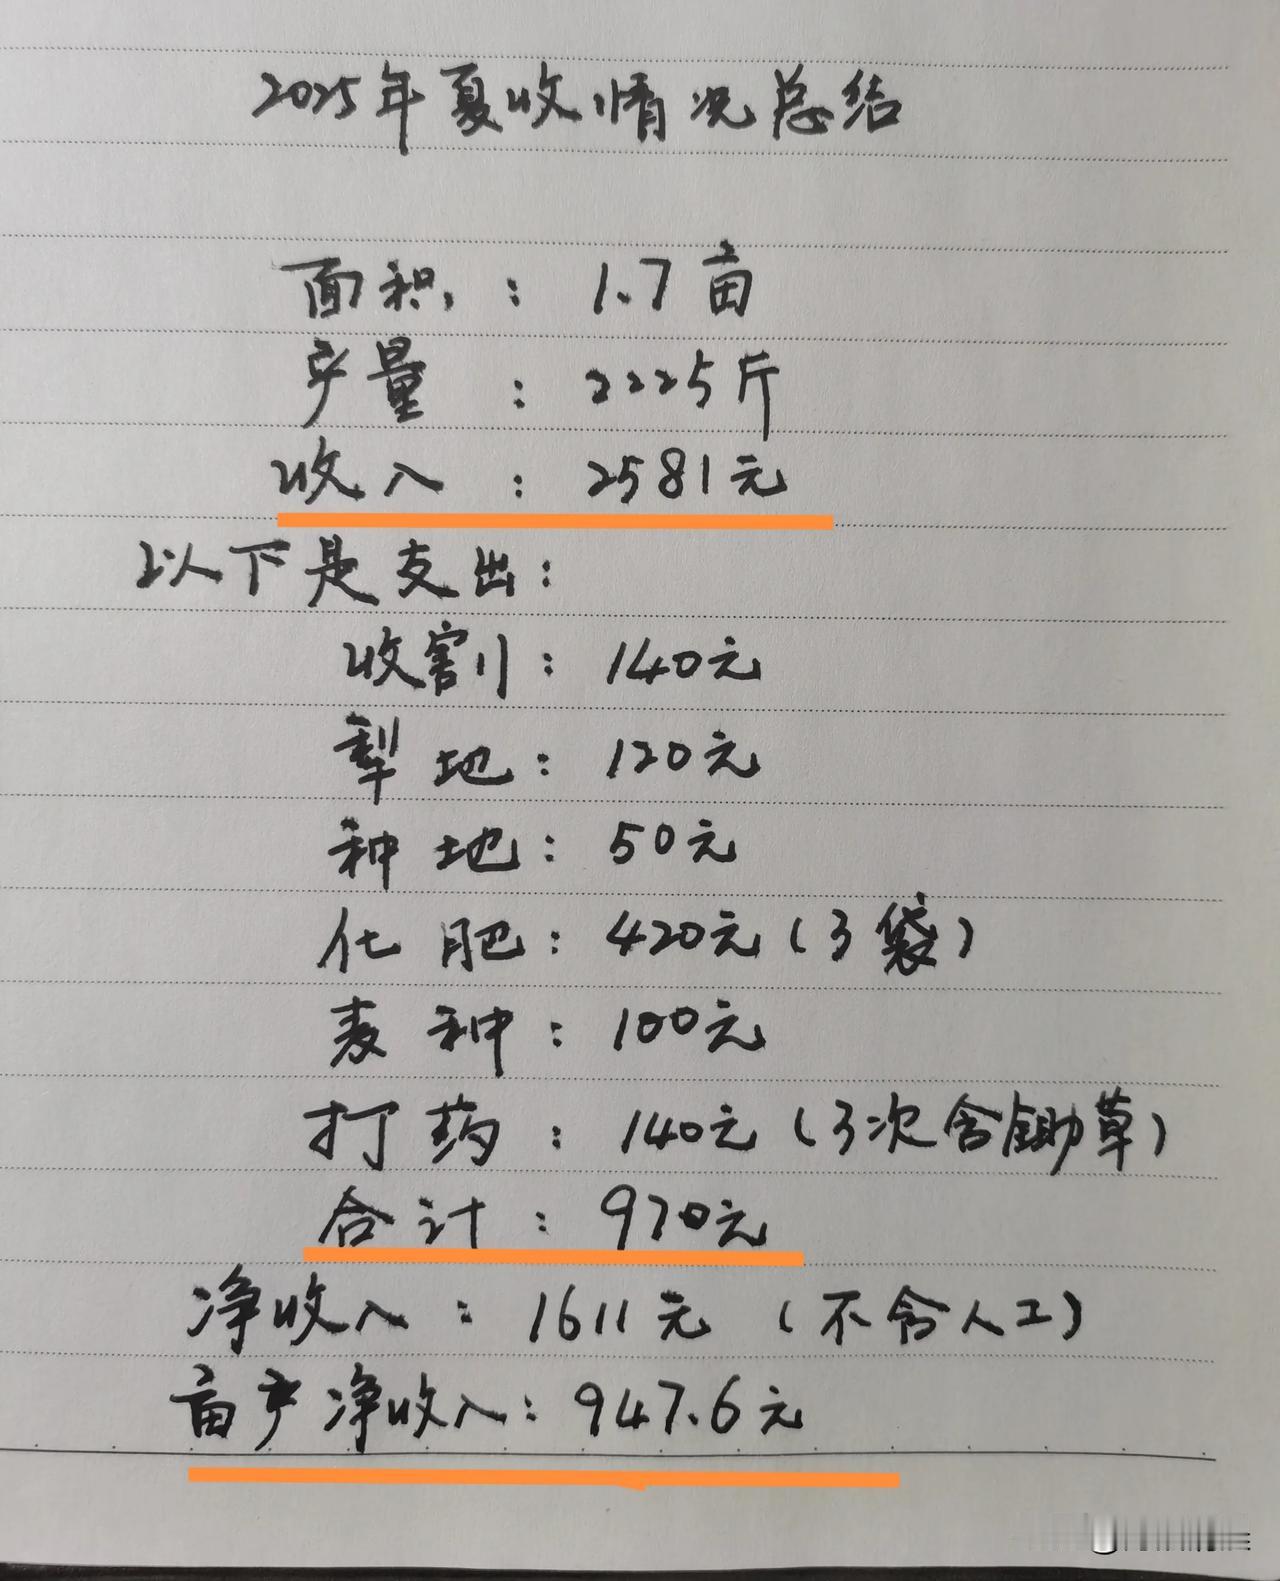 2025年夏收情况总结
面积：1.7亩
产量：2225斤
收入：2581元
以下是支出：
收割：140元
犁地：120元
种地：50元
化肥：420元（3袋）
麦种：100元
打药：140元（3次含锄草）
合计：970元
净收入：1611元（不含人工）
亩产净收入：947.6元